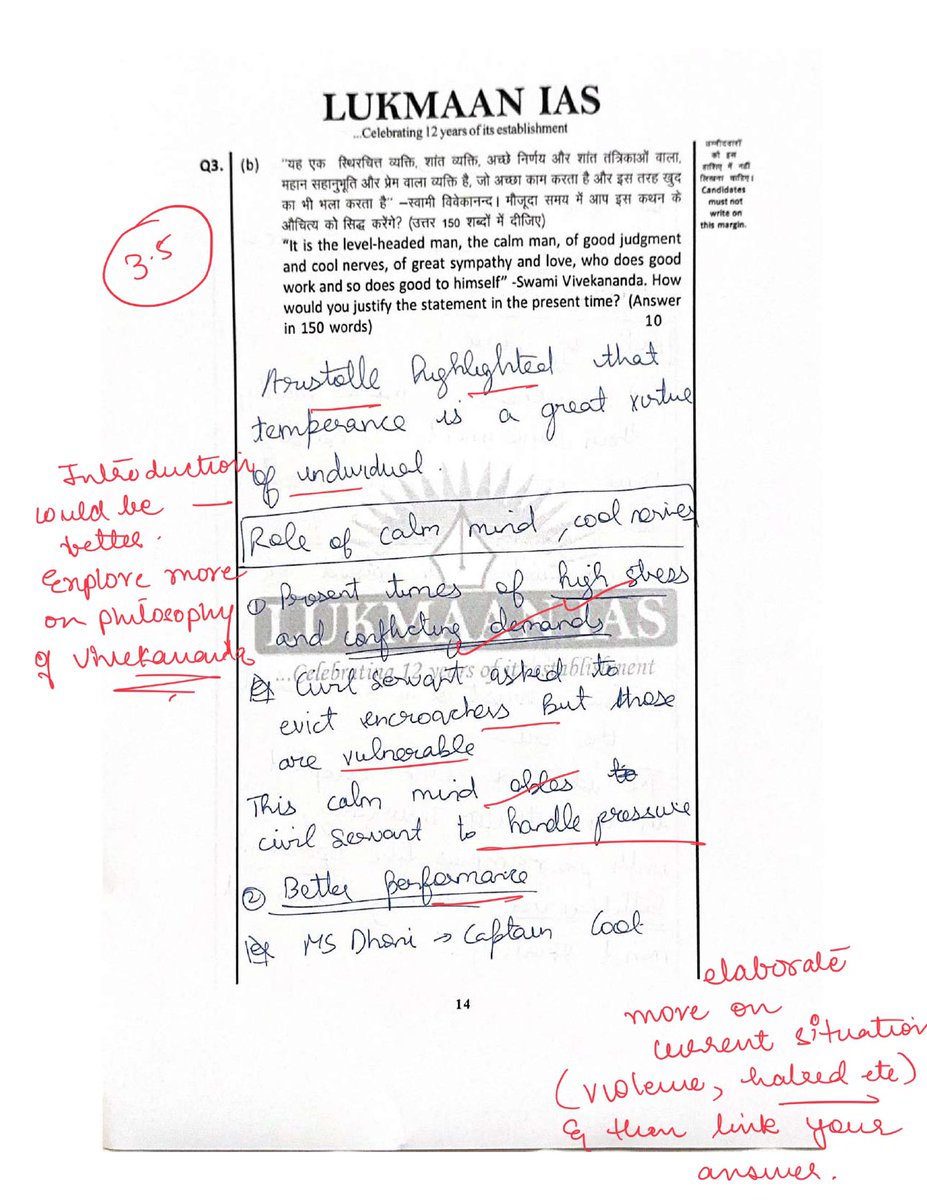 LUKMAAN IAS
...Celebrating 12 years of its establishment
उम्मीदवारों
को इस
हाशिए में नहीं
लिखना चाहिए।
Candidates
must not
write on
this margin.
Q3. (b) "यह एक स्थिरचित्त व्यक्ति, शांत व्यक्ति, अच्छे निर्णय और शांत तंत्रिकाओं वाला,
महान सहानुभूति और प्रेम वाला व्यक्ति है, जो अच्छा काम करता है और इस तरह खुद
का भी भला करता है" –स्वामी विवेकानन्द। मौजूदा समय में आप इस कथन के
औचित्य को सिद्ध करेंगे? (उत्तर 150 शब्दों में दीजिए)
"It is the level-headed man, the calm man, of good judgment
and cool nerves, of great sympathy and love, who does good
work and so does good to himself" -Swami Vivekananda. How
would you justify the statement in the present time? (Answer
in 150 words) 10
3.5
Aristotle highlighted that
temperance is a great virtue
of individual.
Introduction
would be
better.
Explore more
on philosophy
of Vivekananda
Role of calm mind, cool nerves
① Present times of high stress
and conflicting demands
LUKMAAN IAS
...Celebrating 12 years of its establishment
Eg Civil servant asked to
evict encroachers but those
are vulnerable
This calm mind ables to
civil servant to handle pressure
② Better performance
Eg MS Dhoni → Captain Cool
14
elaborate
more on
current situation
(violence, hatred etc)
& then link your
answer.